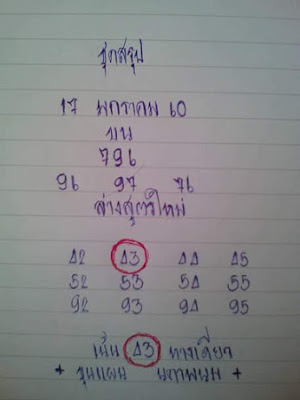 ชุดสรุป
17 มกราคม 60
บน
796
96 97 76
ล่างสูตรใหม่
42 43 44 45
52 53 54 55
92 93 94 95
เน้น 43 ทางเดียว
* ขุนแผน นครพนม *